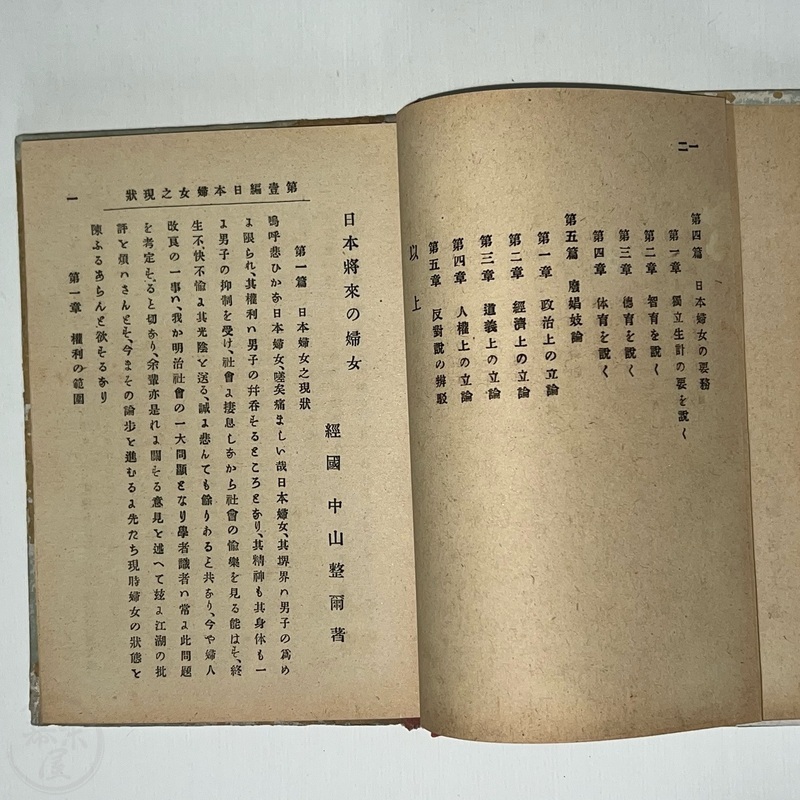 一二
第四篇 日本婦女の要務
第一章 獨立生計の要を說く
第二章 智育を說く
第三章 德育を說く
第四章 体育を說く
第五篇 廢娼妓論
第一章 政治上の立論
第二章 經濟上の立論
第三章 道義上の立論
第四章 人權上の立論
第五章 反對說の辨駁
以上
第壹編日本婦女之現狀
一
日本將來の婦女
經國 中山整爾著
第一篇 日本婦女之現狀
嗚呼悲ひかな日本婦女、嗟矣痛ましい哉日本婦女、其堺界ハ男子の爲め
に限られ、其權利ハ男子の幷呑するところとなり、其精神も其身体も一
に男子の抑制を受け、社會に捿息しなから社會の愉樂を見る能はす、終
生不快不愉に其光陰を送る、誠に悲んても餘りあると共なり、今や婦人
改良の一事ハ、我か明治社會の一大問題となり學者識者ハ常に此問題
を考定すると切なり、余輩亦是れに關する意見を述へて玆に江湖の批
評を煩ハさんとす、今まその論步を進むるに先たち現時婦女の狀態を
陳ふるあらんと欲するなり
第一章 權利の範圍